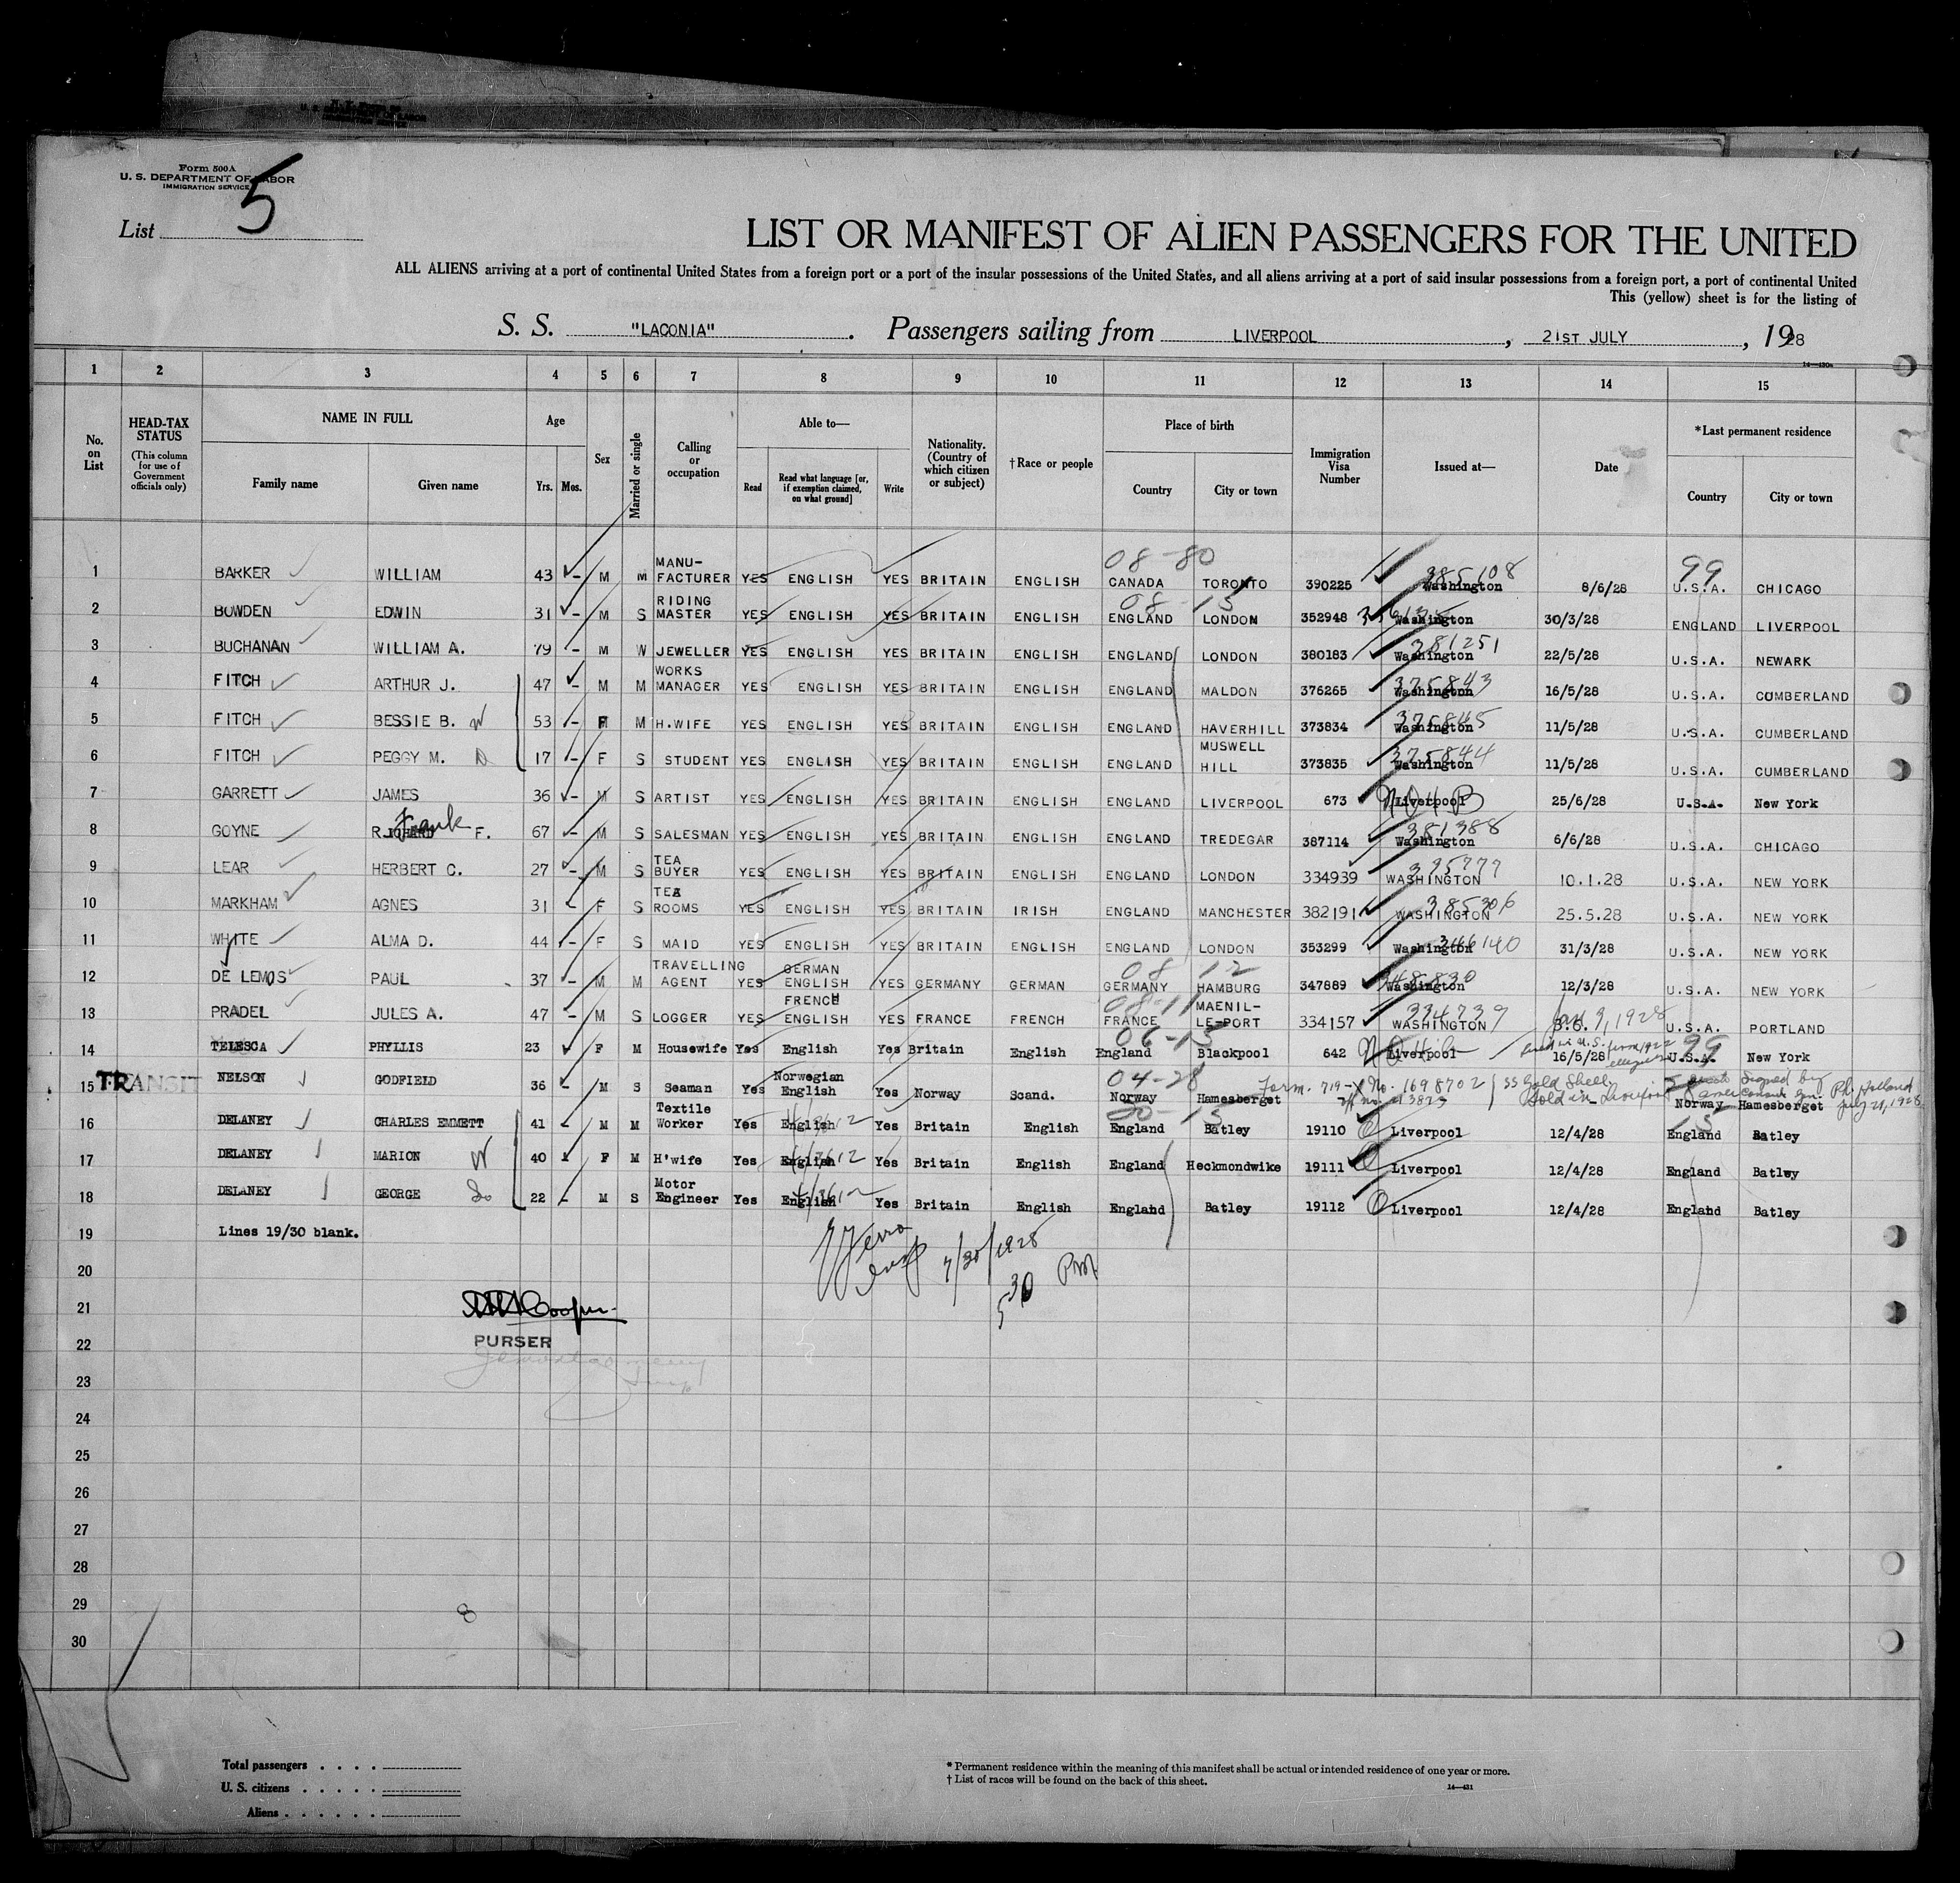 Form 500A
U. S. DEPARTMENT OF LABOR
IMMIGRATION SERVICE
List 5
LIST OR MANIFEST OF ALIEN PASSENGERS FOR THE UNITED
ALL ALIENS arriving at a port of continental United States from a foreign port or a port of the insular possessions of the United States, and all aliens arriving at a port of said insular possessions from a foreign port, a port of continental United
This (yellow) sheet is for the listing of
S. S. "LACONIA". Passengers sailing from LIVERPOOL, 21ST JULY, 1928
14—430a
1 2 3 4 5 6 7 8 9 10 11 12 13 14 15
No. on List
HEAD-TAX STATUS (This column for use of Government officials only)
NAME IN FULL
Family name Given name
Age
Yrs. Mos.
Sex
Married or single
Calling or occupation
Able to—
Read Read what language [or, if exemption claimed, on what ground] Write
Nationality. (Country of which citizen or subject)
†Race or people
Place of birth
Country City or town
Immigration Visa Number
Issued at—
Date
*Last permanent residence
Country City or town
08-80 385108 99
1 BARKER WILLIAM 43 - M M MANU-FACTURER YES ENGLISH YES BRITAIN ENGLISH CANADA TORONTO 390225 Washington 8/6/28 U.S.A. CHICAGO
08-15
2 BOWDEN EDWIN 31 - M S RIDING MASTER YES ENGLISH YES BRITAIN ENGLISH ENGLAND LONDON 352948 Washington 30/3/28 ENGLAND LIVERPOOL
381251
3 BUCHANAN WILLIAM A. 79 - M W JEWELLER YES ENGLISH YES BRITAIN ENGLISH ENGLAND LONDON 380183 Washington 22/5/28 U.S.A. NEWARK
375843
4 FITCH ARTHUR J. 47 - M M WORKS MANAGER YES ENGLISH YES BRITAIN ENGLISH ENGLAND MALDON 376265 Washington 16/5/28 U.S.A. CUMBERLAND
375845
5 FITCH BESSIE B. W 53 - F M H.WIFE YES ENGLISH YES BRITAIN ENGLISH ENGLAND HAVERHILL 373834 Washington 11/5/28 U.S.A. CUMBERLAND
375844
6 FITCH PEGGY M. D 17 - F S STUDENT YES ENGLISH YES BRITAIN ENGLISH ENGLAND MUSWELL HILL 373835 Washington 11/5/28 U.S.A. CUMBERLAND
7 GARRETT JAMES 36 - M S ARTIST YES ENGLISH YES BRITAIN ENGLISH ENGLAND LIVERPOOL 673 Liverpool 25/6/28 U.S.A. New York
381388
8 GOYNE Frank F. 67 - M S SALESMAN YES ENGLISH YES BRITAIN ENGLISH ENGLAND TREDEGAR 387114 Washington 6/6/28 U.S.A. CHICAGO
395777
9 LEAR HERBERT C. 27 - M S TEA BUYER YES ENGLISH YES BRITAIN ENGLISH ENGLAND LONDON 334939 WASHINGTON 10.1.28 U.S.A. NEW YORK
385306
10 MARKHAM AGNES 31 - F S TEA ROOMS YES ENGLISH YES BRITAIN IRISH ENGLAND MANCHESTER 382191 WASHINGTON 25.5.28 U.S.A. NEW YORK
346140
11 WHITE ALMA D. 44 - F S MAID YES ENGLISH YES BRITAIN ENGLISH ENGLAND LONDON 353299 Washington 31/3/28 U.S.A. NEW YORK
08 12
12 DE LEMOS PAUL 37 - M M TRAVELLING AGENT YES GERMAN ENGLISH YES GERMANY GERMAN GERMANY HAMBURG 347889 Washington 12/3/28 U.S.A. NEW YORK
08-11 334739 Jan 9, 1928
13 PRADEL JULES A. 47 - M S LOGGER YES FRENCH ENGLISH YES FRANCE FRENCH FRANCE MAENIL-LE-PORT 334157 WASHINGTON U.S.A. PORTLAND
06-15 99
14 TELESCA PHYLLIS 23 F M Housewife Yes English Yes Britain English England Blackpool 642 Liverpool 16/5/28 U.S.A. New York
TRANSIT
04-28 Form. 719- No. 1698702 SS Gold Shell Sold in Liverpool signed by
15 NELSON GODFIELD 36 - M S Seaman Yes Norwegian English Yes Norway Scand. Norway Hamesberget Norway Hamesberget July 21, 1928
15
16 DELANEY CHARLES EMMETT 41 - M M Textile Worker Yes English Yes Britain English England Batley 19110 Liverpool 12/4/28 England Batley
17 DELANEY MARION W 40 - F M H'wife Yes English Yes Britain English England Heckmondwike 19111 Liverpool 12/4/28 England Batley
18 DELANEY GEORGE So 22 - M S Motor Engineer Yes English Yes Britain English England Batley 19112 Liverpool 12/4/28 England Batley
19 Lines 19/30 blank.
7/30/1928
5 30 PM
20
21 Cooper
22 PURSER
23
24
25
26
27
28
29 8
30
Total passengers
U. S. citizens
Aliens
* Permanent residence within the meaning of this manifest shall be actual or intended residence of one year or more.
† List of races will be found on the back of this sheet.
14—431